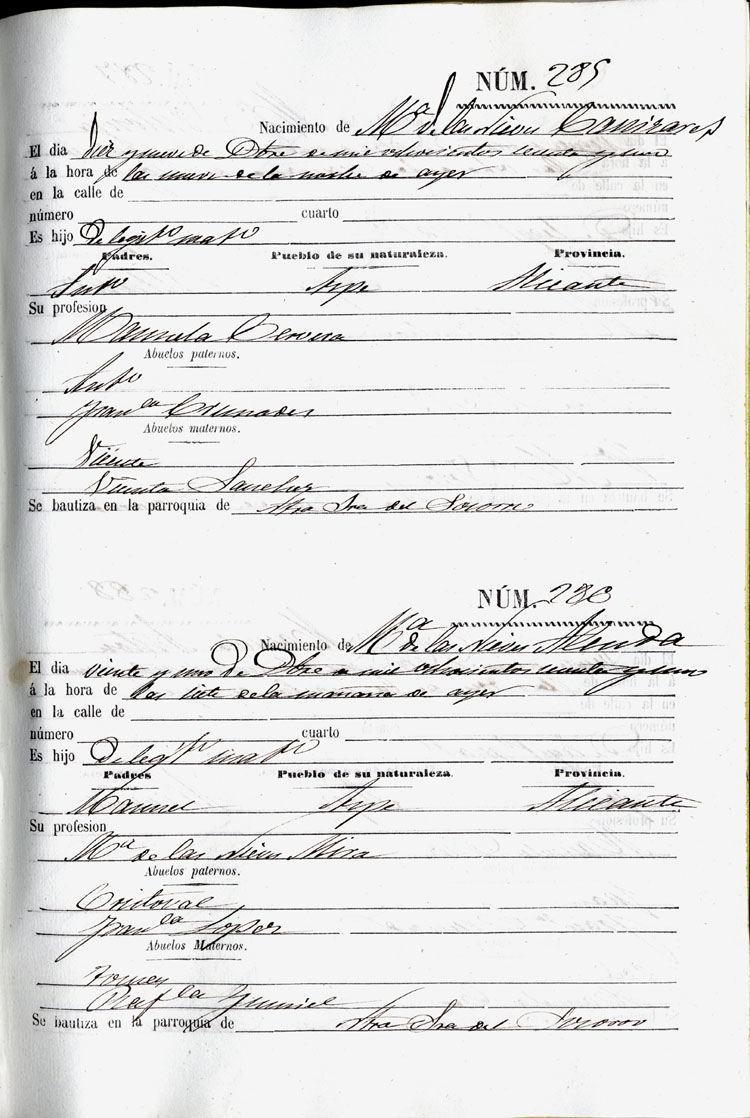 NÚM. 285
Nacimiento de Mª de las Nieves Cañizares
El dia diez y nueve de Dbre de mil ochocientos setenta y uno
á la hora de las nueve de la noche de ayer
en la calle de
número cuarto
Es hijo De legitº matº
Padres. Pueblo de su naturaleza. Provincia.
Antº Aspe Alicante
Su profesion
Manuela Cervera
Abuelos paternos.
Antº
Franca
Abuelos maternos.
Vicente
Vicenta Sanchez
Se bautiza en la parroquia de Ntra Sra del Socorro
NÚM. 286
Nacimiento de Mª de las Nieves Almoda
El dia veinte y uno de Dbre de mil ochocientos setenta y uno
á la hora de las siete de la mañana de ayer
en la calle de
número cuarto
Es hijo De legtº matº
Padres Pueblo de su naturaleza. Provincia.
Manuel Aspe Alicante
Su profesion
Mª de las Nieves Mira
Abuelos paternos.
Cristoval
Franca Lopez
Abuelos Maternos.
Rafla
Se bautiza en la parroquia de Ntra Sra del Socorro